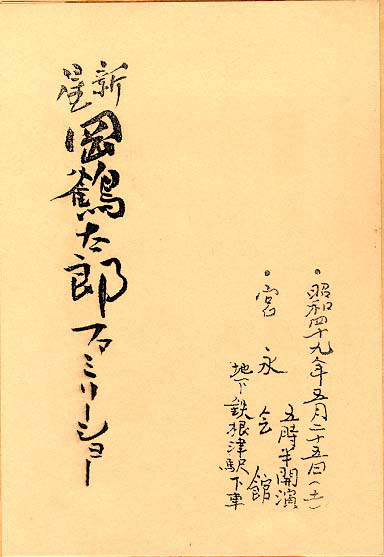 ・昭和四十九年五月二十五日（土）
五時半開演
・宮永会館
地下鉄根津駅下車
新星
岡鶴太郎ファミリーショー